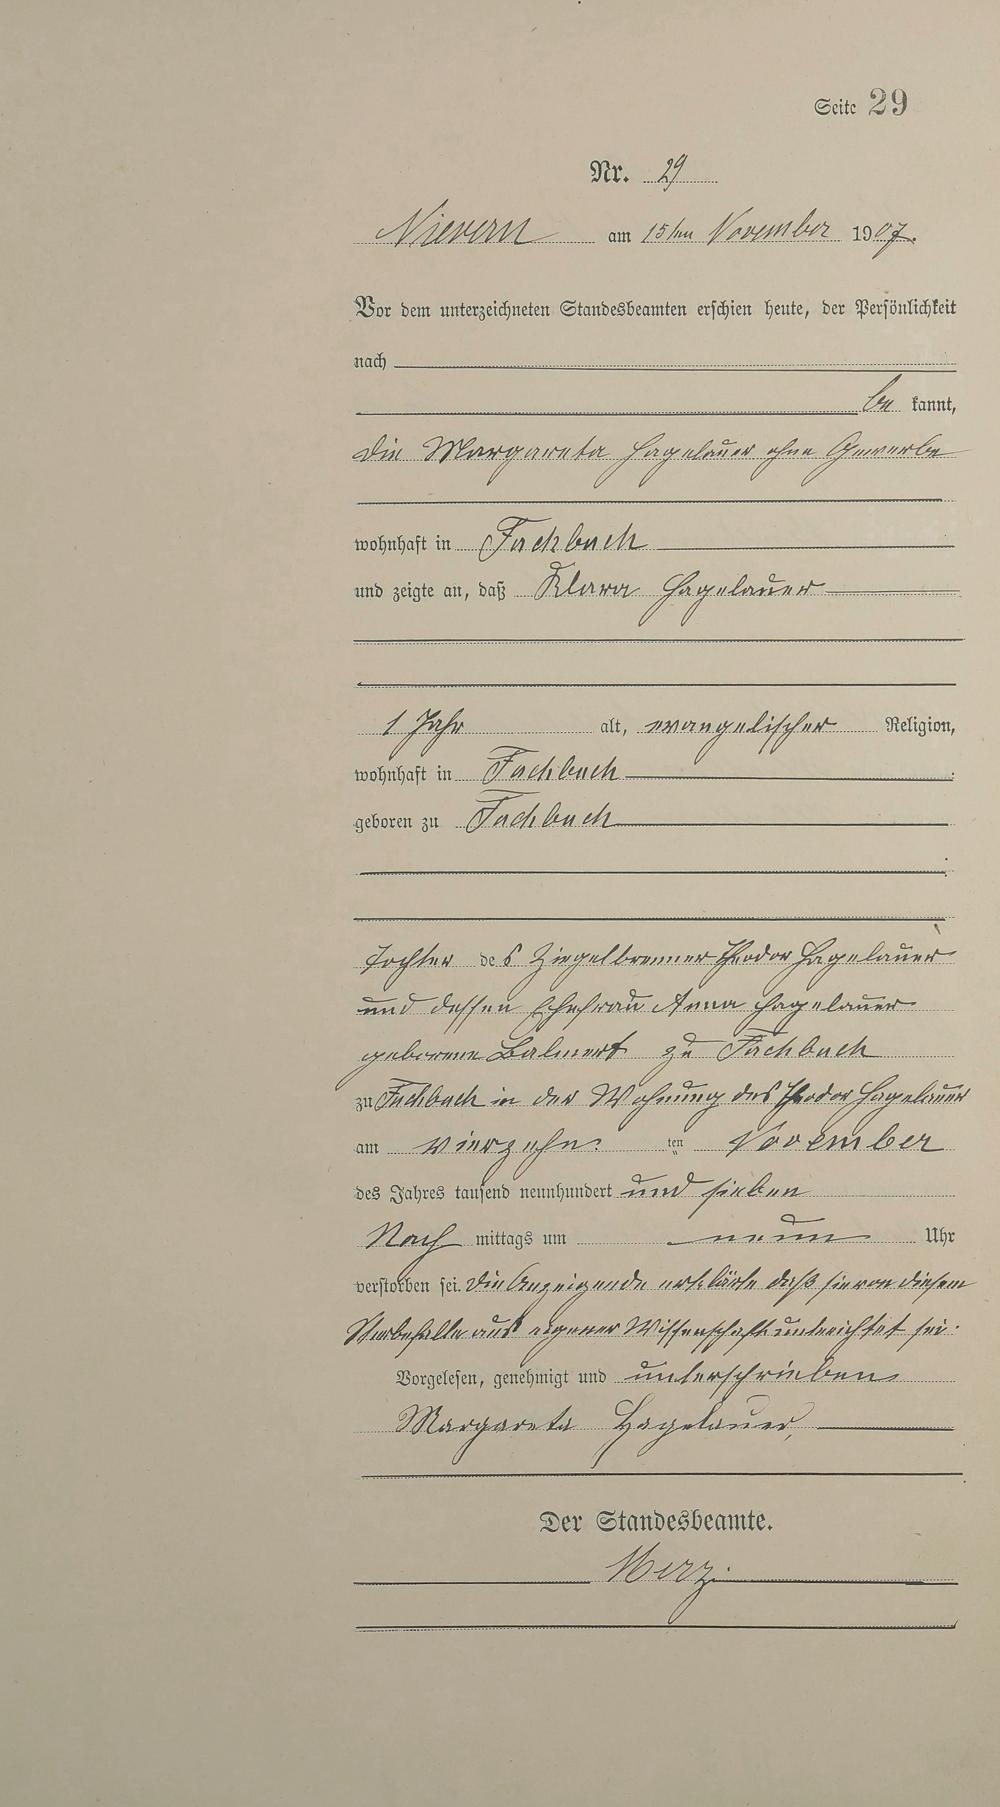 Seite 29
Nr. 29
Nievern am 15ten November 1907.
Vor dem unterzeichneten Standesbeamten erschien heute, der Persönlichkeit
nach
be kannt,
die Margareta Hagelauer ohne Gewerbe
wohnhaft in Fachbach
und zeigte an, daß Klara Hagelauer
1 Jahr alt, evangelischer Religion,
wohnhaft in Fachbach
geboren zu Fachbach
Tochter des Ziegelbrenner Theodor Hagelauer
und dessen Ehefrau Anna Hagelauer
geborene Balmert zu Fachbach
zu Fachbach in der Wohnung des Theodor Hagelauer
am vierzehn ten November
des Jahres tausend neunhundert und sieben
Nach mittags um neun Uhr
verstorben sei. Die Anzeigende erklärte daß sie von diesem
Sterbefalle aus eigener Wissenschaft unterrichtet sei.
Vorgelesen, genehmigt und unterschrieben
Margareta Hagelauer,
Der Standesbeamte.
Merz.